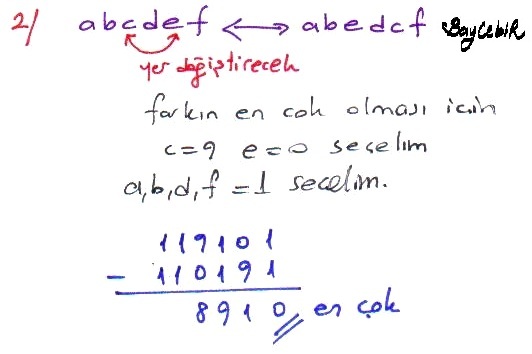 2/ abcdef ⟷ abedcf BayCebiR
yer değiştirecek
farkın en çok olması için
c=9 e=0 seçelim
a,b,d,f =1 seçelim.
119101
- 110191
8910 en çok